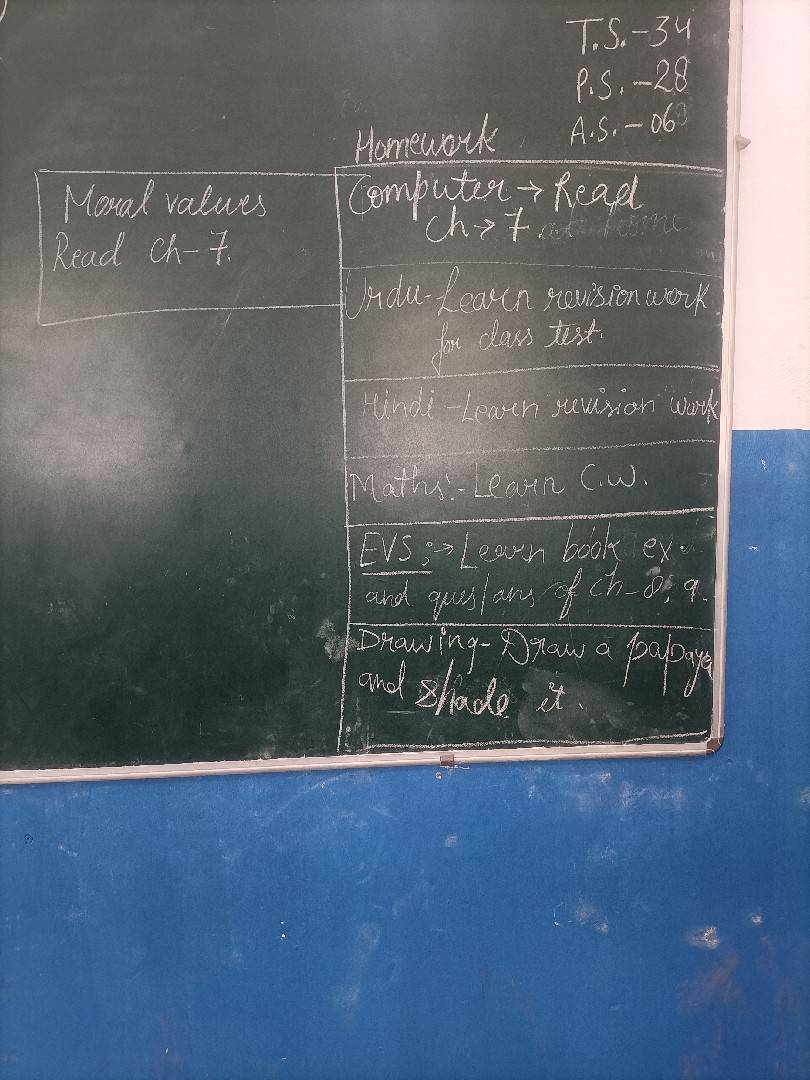 T.S.-34
P.S.-28
A.S.-06
Homework
Moral values
Read ch-7.
Computer → Read
Ch → 7.
Urdu-Learn revision work
for class test.
Hindi-Learn revision work
Maths:-Learn C.W.
EVS:→ Learn book ex.
and ques/ans of ch-8, 9.
Drawing-Draw a papaya
and shade it.